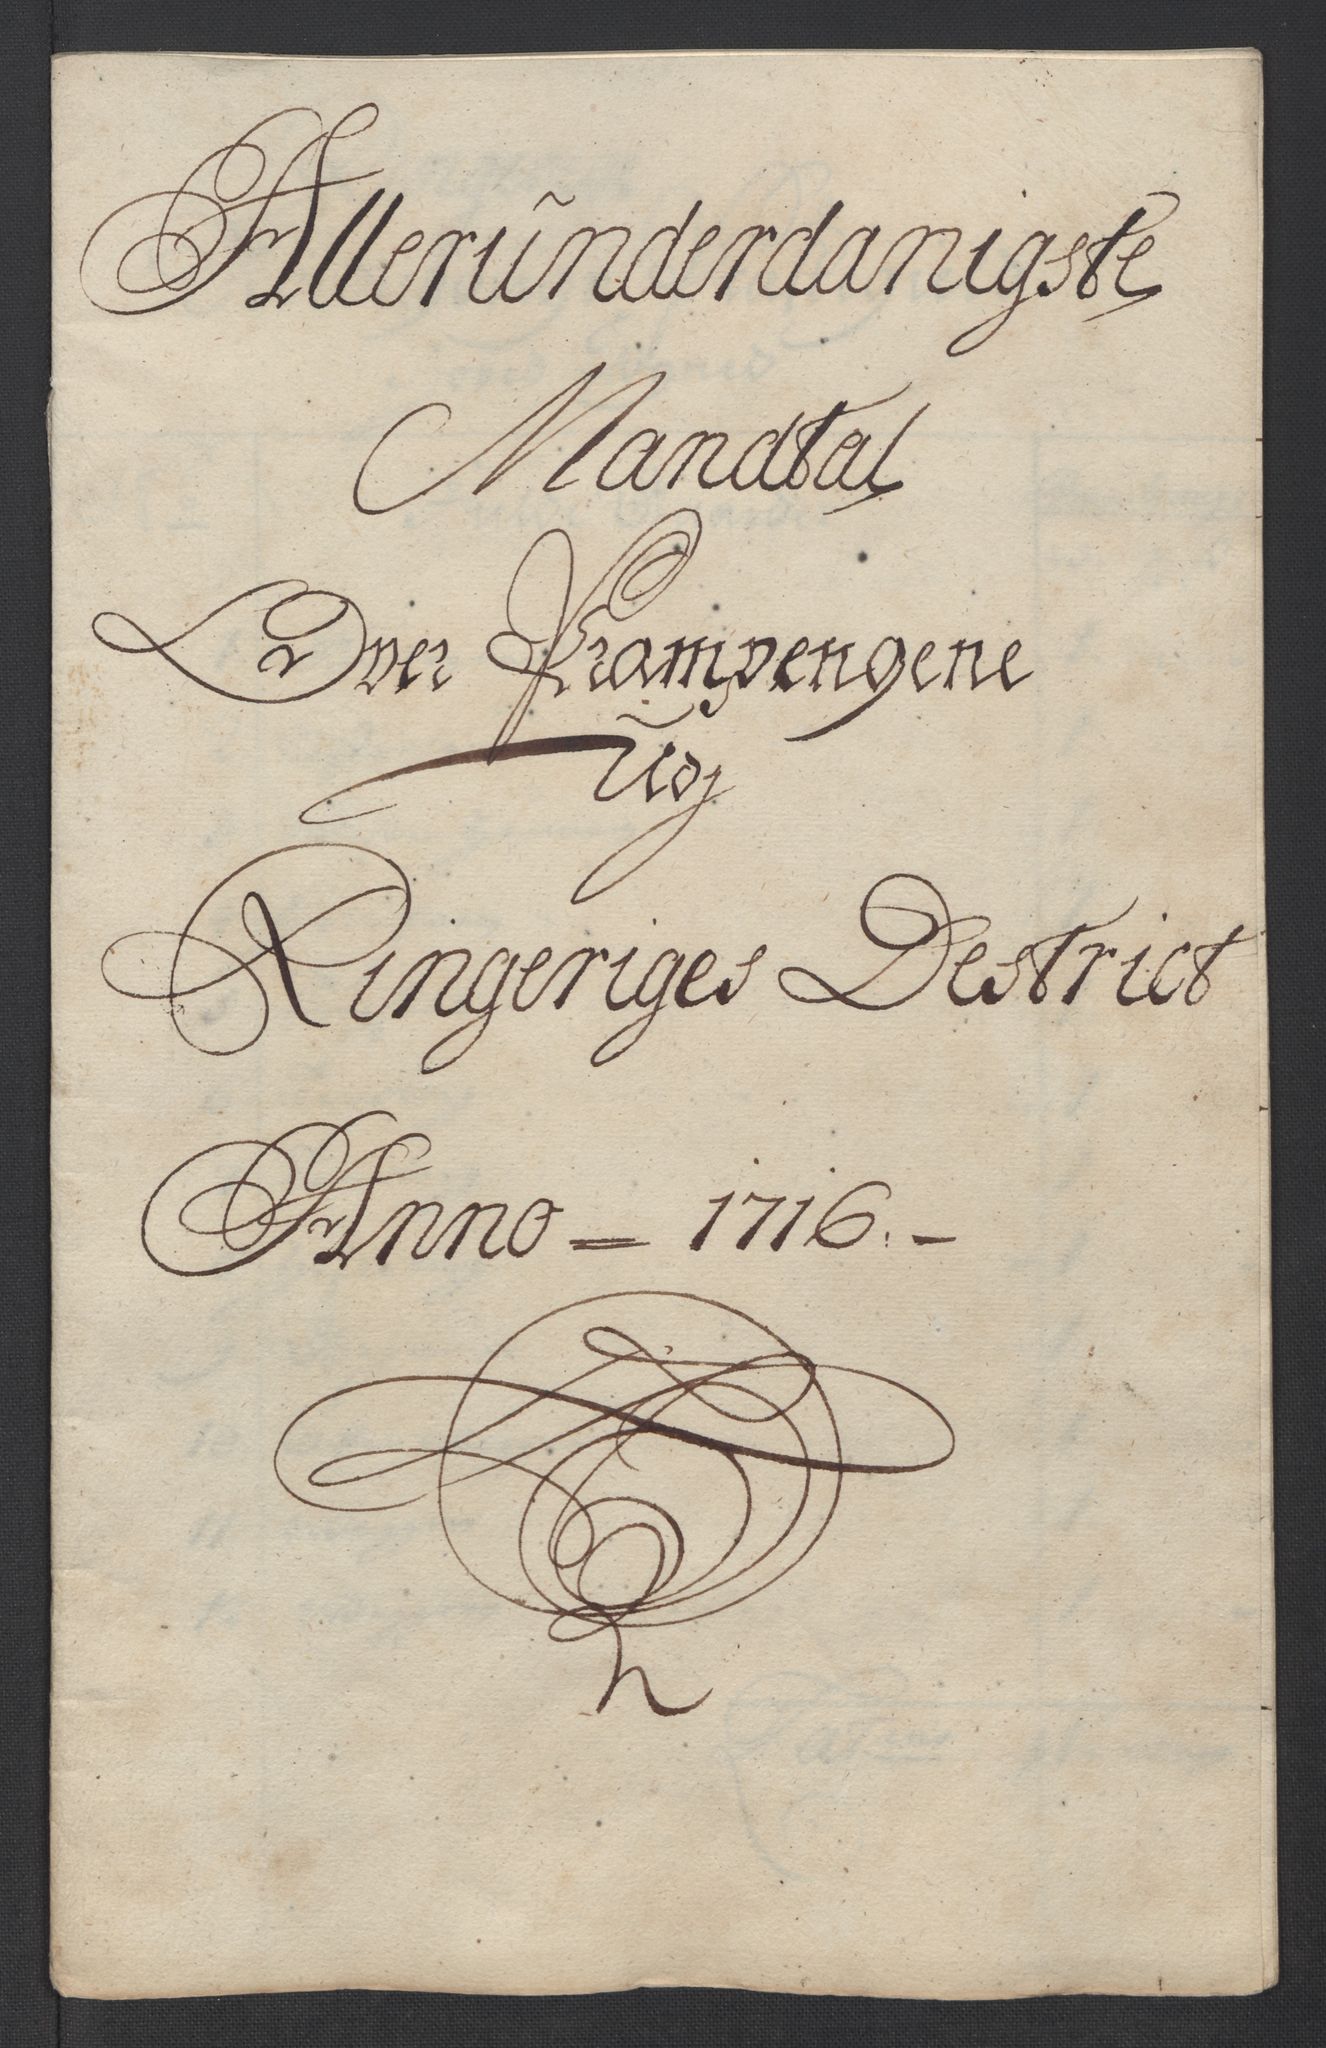 Allerunderdanigste
Mandtal
Over Krampengene
Udj
Ringeriges Destrict
Anno = 1716. -